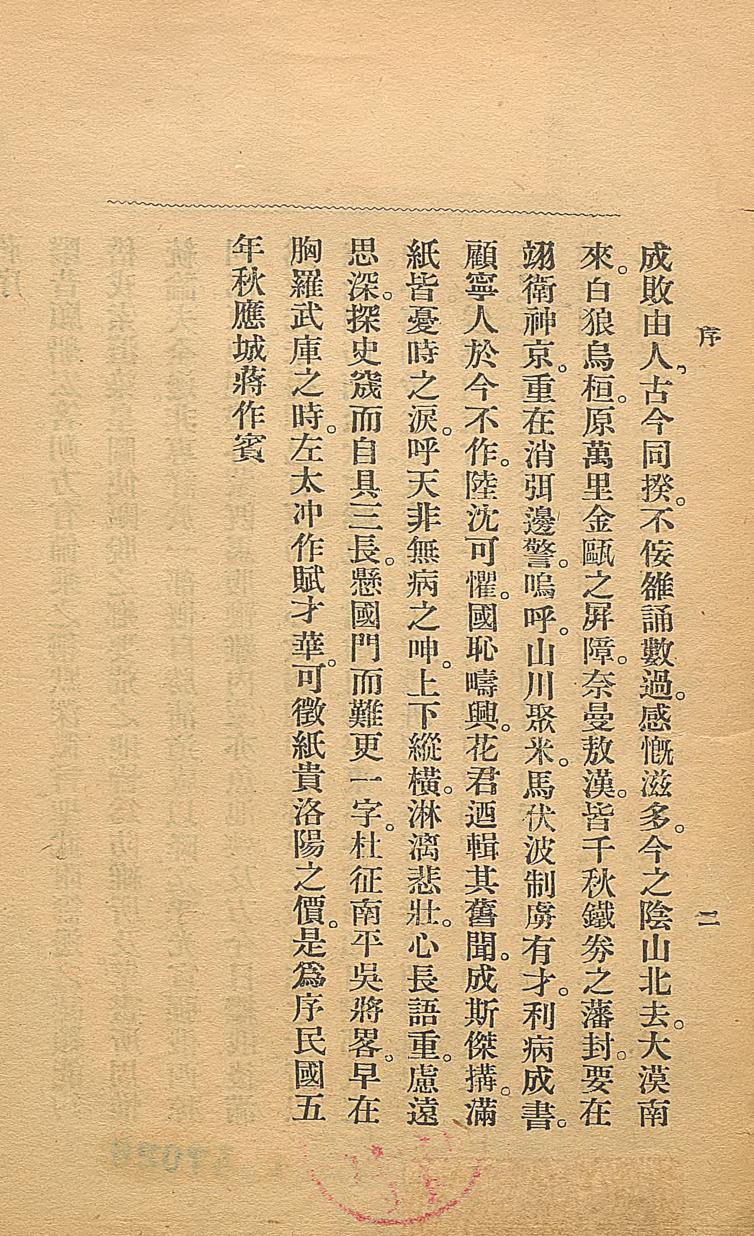 序
二
成敗由人。古今同揆。不佞雒誦數過。感慨滋多。今之陰山北去。大漠南
來。白狼烏桓。原萬里金甌之屏障。奈曼敖漢。皆千秋鐵劵之藩封。要在
翊衛神京。重在消弭邊警。嗚呼。山川聚米。馬伏波制虜有才。利病成書。
顧寧人於今不作。陸沈可懼。國恥疇興。花君迺輯其舊聞。成斯傑搆。滿
紙皆憂時之淚。呼天非無病之呻。上下縱橫。淋漓悲壯。心長語重。慮遠
思深。探史筬而自具三長。懸國門而難更一字。杜征南平吳將畧。早在
胸羅武庫之時。左太冲作賦才華。可徵紙貴洛陽之價。是爲序民國五
年秋應城蔣作賓